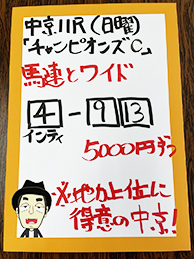 中京11R(日曜)
「チャンピオンズC」
馬連とワイド
4-9 13
インティ
5000円ずつ
※地力上位に
得意の中京!